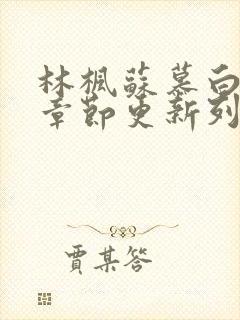 林楓蘇慕白
章節更新列
賈某答